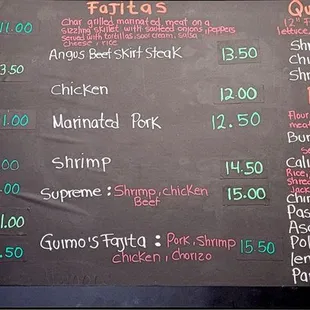 11.00
3.50
1.00
00
00
1.00
.50
Fajitas
Char grilled marinated meat on a
sizzling skillet with sauteed onions, peppers
served with tortillas, sour cream, salsa
cheese, rice
Angus Beef Skirt Steak 13.50
Chicken 12.00
Marinated Pork 12.50
Shrimp 14.50
Supreme : Shrimp, chicken 15.00
Beef
Guimo's Fajita : Pork, Shrimp 15.50
Chicken, Chorizo
Qu
12" F
lettuce,
Sh
Chi
Shr
Flour
mea
Bur
Cali
Rice,
Shre
jack
Chi
Pas
Asa
Pol
len
Par